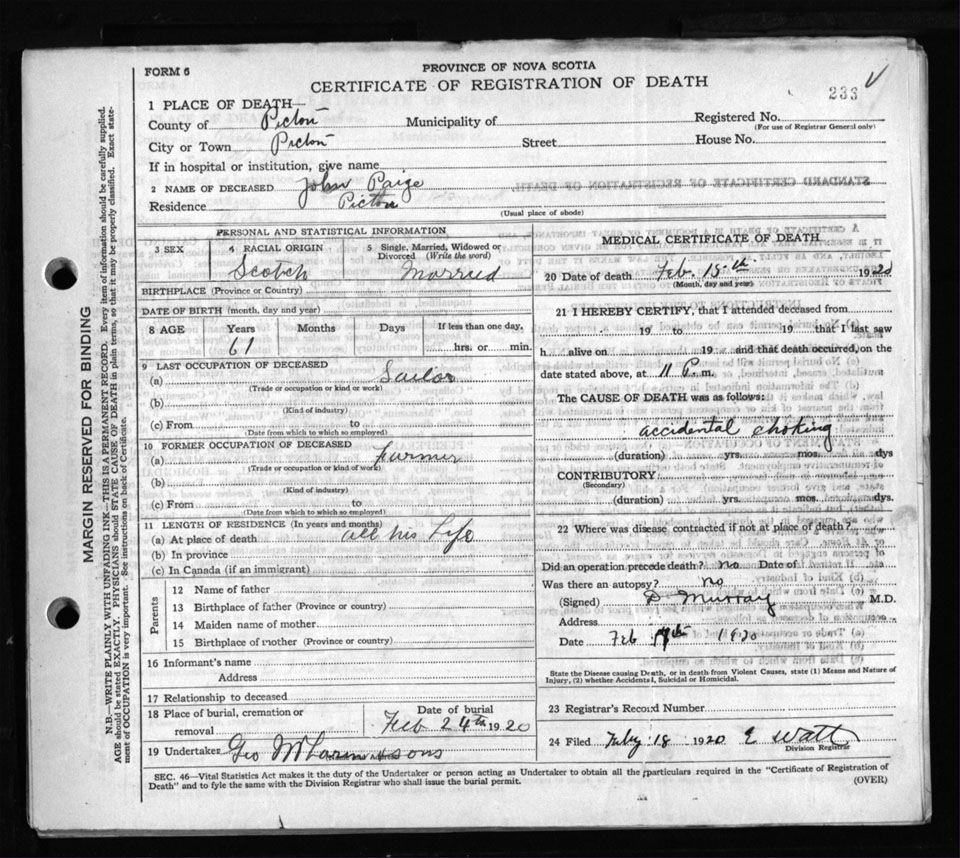 PROVINCE OF NOVA SCOTIA
FORM 6
CERTIFICATE OF REGISTRATION OF DEATH
233
1 PLACE OF DEATH—
County of Pictou Municipality of Registered No.
(For use of Registrar General only)
City or Town Pictou Street House No.
If in hospital or institution, give name
2 NAME OF DECEASED John Paige
Residence Pictou
(Usual place of abode)
PERSONAL AND STATISTICAL INFORMATION
3 SEX 4 RACIAL ORIGIN 5 Single, Married, Widowed or Divorced (Write the word)
Scotch Married
BIRTHPLACE (Province or Country)
DATE OF BIRTH (month, day and year)
8 AGE Years Months Days If less than one day,
61 hrs. or min.
9 LAST OCCUPATION OF DECEASED
(a) Sailor
(Trade or occupation or kind or work)
(b)
(Kind of industry)
(c) From to
(Date from which to which so employed)
10 FORMER OCCUPATION OF DECEASED
(a) farmer
(Trade or occupation or kind of work)
(b)
(Kind of industry)
(c) From to
(Date from which to which so employed)
11 LENGTH OF RESIDENCE (In years and months)
(a) At place of death all his Life
(b) In province
(c) In Canada (if an immigrant)
Parents
12 Name of father
13 Birthplace of father (Province or country)
14 Maiden name of mother
15 Birthplace of mother (Province or country)
16 Informant's name
Address
17 Relationship to deceased
18 Place of burial, cremation or removal
Date of burial
Feb 24th 1920
19 Undertaker Geo & sons
MEDICAL CERTIFICATE OF DEATH
20 Date of death Feb. 15th 1920
(Month, day and year)
21 I HEREBY CERTIFY, that I attended deceased from
19 to 19 that I last saw
h alive on 19 and that death occurred, on the
date stated above, at 11 P. m.
The CAUSE OF DEATH was as follows:
accidental choking
(duration) yrs. mos. dys
CONTRIBUTORY
(Secondary)
(duration) yrs. mos. dys.
22 Where was disease contracted if not at place of death?
Did an operation precede death? no Date of
Was there an autopsy? no
(Signed) D Murray M.D.
Address
Date Feb 1920
State the Disease causing Death, or in death from Violent Causes, state (1) Means and Nature of
Injury, (2) whether Accidental, Suicidal or Homicidal.
23 Registrar's Record Number
24 Filed 18 1920 E Watt
Division Registrar
SEC. 46—Vital Statistics Act makes it the duty of the Undertaker or person acting as Undertaker to obtain all the particulars required in the "Certificate of Registration of
Death" and to fyle the same with the Division Registrar who shall issue the burial permit.
(OVER)
MARGIN RESERVED FOR BINDING
N.B.—WRITE PLAINLY WITH UNFADING INK—THIS IS A PERMANENT RECORD. Every item of information should be carefully supplied.
AGE should be stated EXACTLY. PHYSICIANS should STATE CAUSE OF DEATH in plain terms, so that it may be properly classified. Exact statement of OCCUPATION is very important. See instructions on back of Certificate.